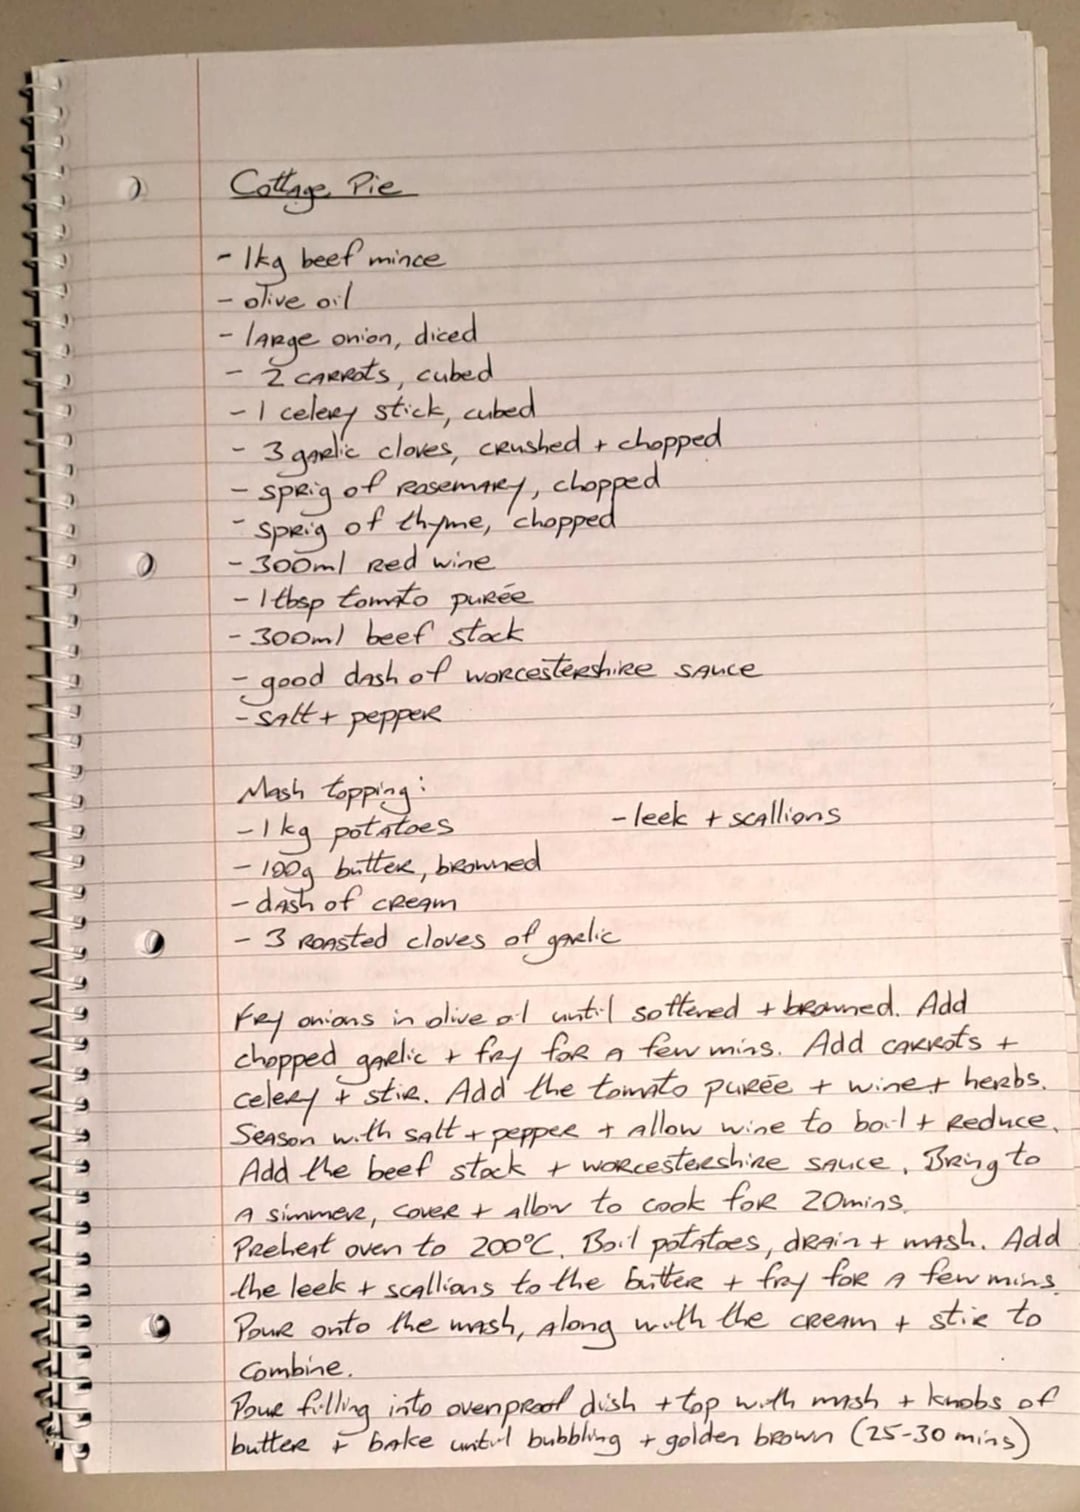 Cottage Pie
- 1kg beef mince
- olive oil
- large onion, diced
- 2 carrots, cubed
- 1 celery stick, cubed
- 3 garlic cloves, crushed + chopped
- sprig of rosemary, chopped
- sprig of thyme, chopped
- 300ml red wine
- 1 tbsp tomato purée
- 300ml beef stock
- good dash of worcestershire sauce
- salt + pepper
Mash topping:
- 1 kg potatoes
- leek + scallions
- 100g butter, browned
- dash of cream
- 3 roasted cloves of garlic
Fry onions in olive oil until softened + browned. Add
chopped garlic + fry for a few mins. Add carrots +
celery + stir. Add the tomato purée + wine + herbs.
Season with salt + pepper + allow wine to boil + reduce.
Add the beef stock + worcestershire sauce. Bring to
a simmer, cover + allow to cook for 20mins.
Preheat oven to 200°C. Boil potatoes, drain + mash. Add
the leek + scallions to the butter + fry for a few mins.
Pour onto the mash, along with the cream + stir to
combine.
Pour filling into ovenproof dish + top with mash + knobs of
butter + bake until bubbling + golden brown (25-30 mins)